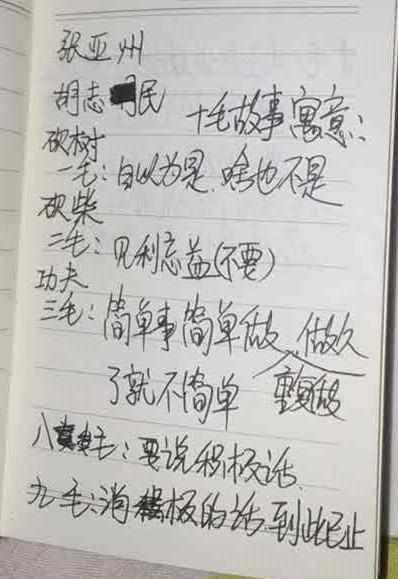 张亚州
胡志民
十毛故事寓意:
砍树
一毛:自以为是.啥也不是
砍柴
二毛:见利忘益(不要)
功夫
三毛:简单事简单做 做久
了就不简单 重复做
八毛:要说积极话.
九毛:消极的话.到此已止